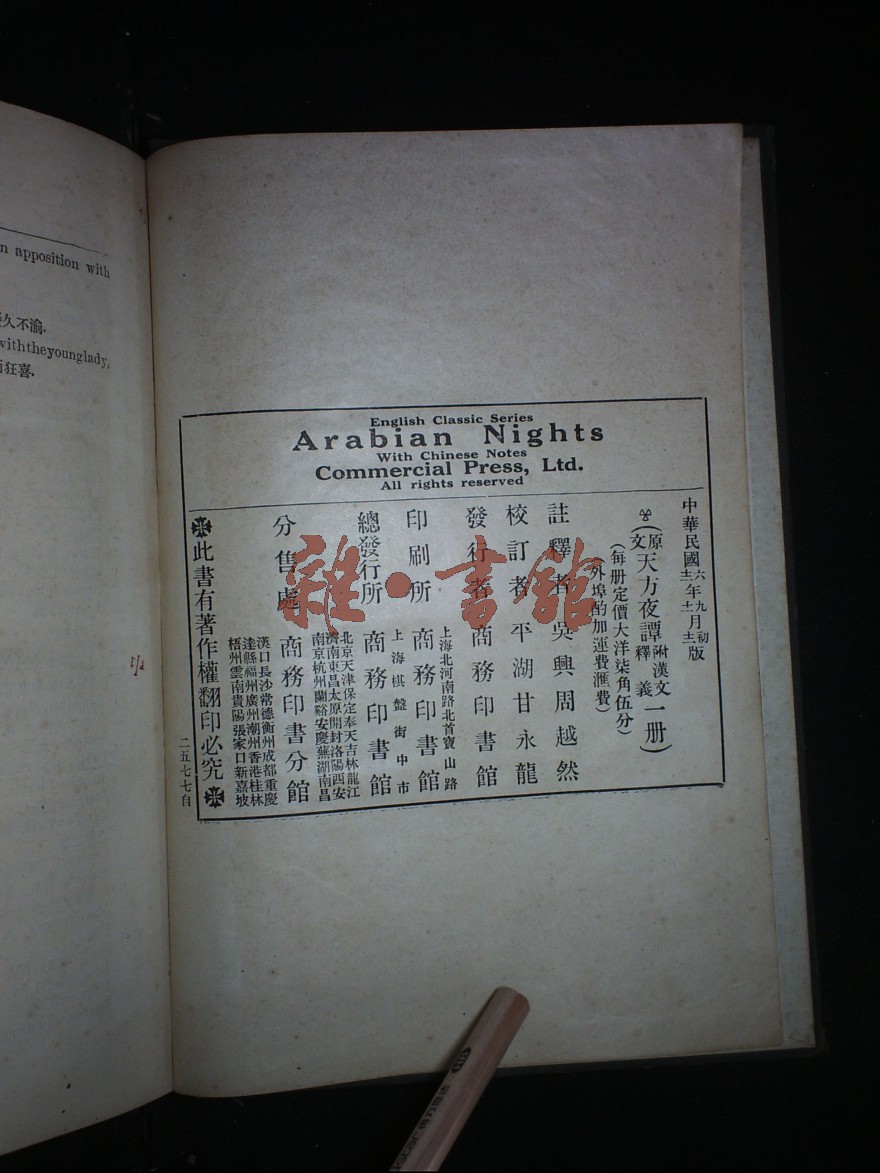 n apposition with
久不渝.
withtheyounglady,
狂喜.
English Classic Series
Arabian Nights
With Chinese Notes
Commercial Press, Ltd.
All rights reserved
中華民國六年九月初版
(原文天方夜譚附漢文釋義一册)
(每册定價大洋柒角伍分)
(外埠酌加運費滙費)
註釋者 吳興周越然
校訂者 平湖甘永龍
發行者 商務印書館
印刷所 上海北河南路北首寶山路 商務印書館
總發行所 上海棋盤街中市 商務印書館
分售處 商務印書分館
北京天津保定奉天吉林龍江
濟南東昌太原開封洛陽西安
南京杭州蘭谿安慶蕪湖南昌
漢口長沙常德衡州成都重慶
達縣福州廣州潮州香港桂林
梧州雲南貴陽張家口新嘉坡
此書有著作權翻印必究
二五七七自
雜·書館